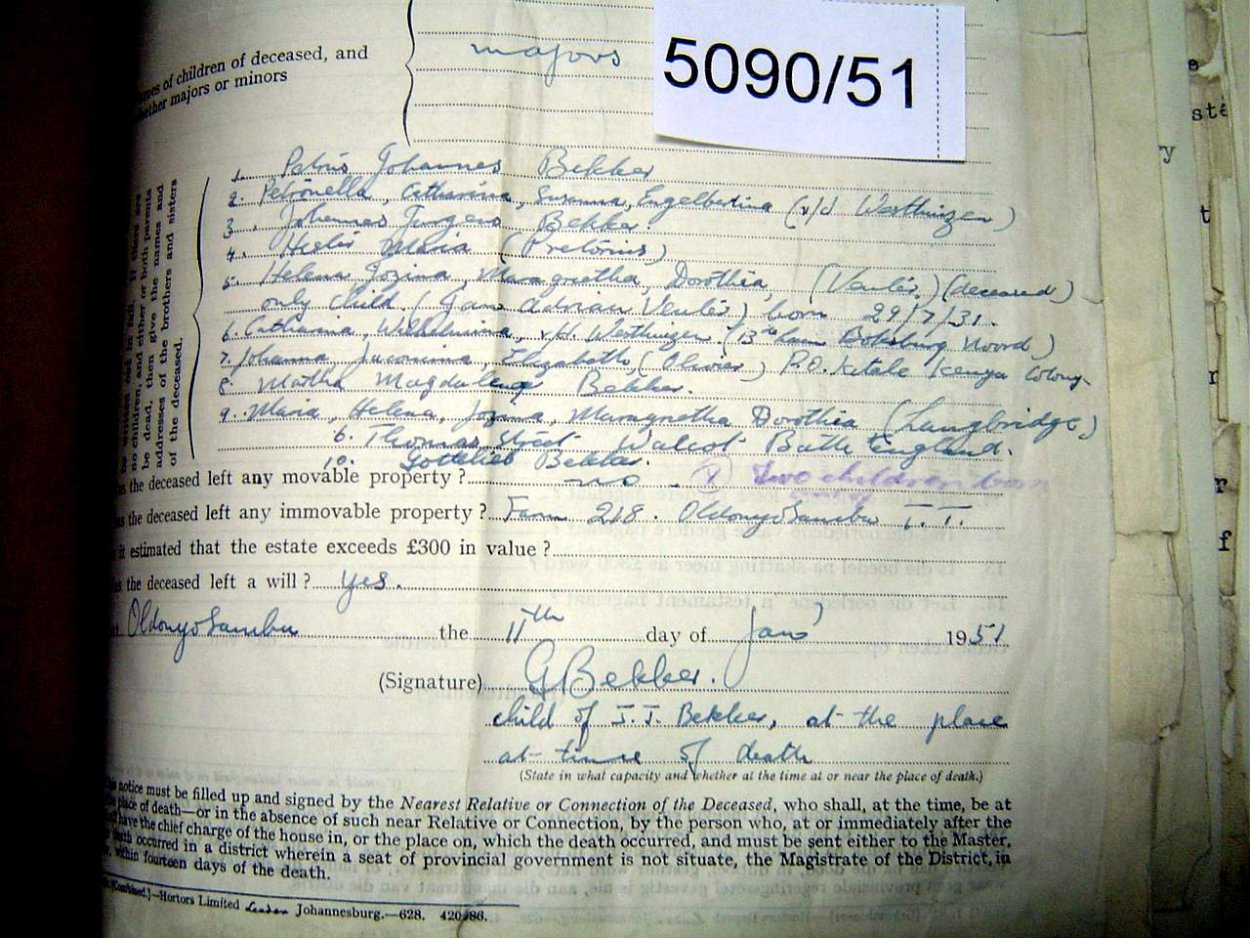 majors
5090/51
names of children of deceased, and
whether majors or minors
1. Petrus Johannes Bekker
2. Petronella, Catharina, Susanna, Engelbertina (v/d Westhuizen)
3. Johannes Jurgens Bekker.
4. Hester Maria (Pretorius)
5. Helena Jozina, Maragretha, Dorothia, (Venter) (deceased)
only child (Jans Adrian Venter) born 29/7/31.
6. Catharina, Wilhelmina, v/d. Westhuizen (13th Laan Boksburg Noord)
7. Johanna Jacomina, Elizabeth, (Olivier) P.O. Kitale Kenya Colony.
8. Martha Magdalena Bekker.
9. Maria, Helena, Jozana, Maragretha Dorothia (Langbridge)
6. Thomas Street Walcot Bath England.
10. Gottlieb Bekker.
be written out in full. If there are
no children, and either or both parents
be dead, then give the names and
addresses of the brothers and sisters
of the deceased.
Has the deceased left any movable property ? no. two children born
Has the deceased left any immovable property ? Farm 218. OldonyoSambu T.T.
is it estimated that the estate exceeds £300 in value ?
Has the deceased left a will ? Yes.
OldonyoSambu the 11th day of Jany 1951
(Signature) GBekker.
child of J.J. Bekker, at the place
at time of death
(State in what capacity and whether at the time at or near the place of death.)
notice must be filled up and signed by the Nearest Relative or Connection of the Deceased, who shall, at the time, be at
place of death—or in the absence of such near Relative or Connection, by the person who, at or immediately after the
have the chief charge of the house in, or the place on, which the death occurred, and must be sent either to the Master,
death occurred in a district wherein a seat of provincial government is not situate, the Magistrate of the District, in
within fourteen days of the death.
(Combined.)—Hortors Limited Johannesburg.—628. 420/86.